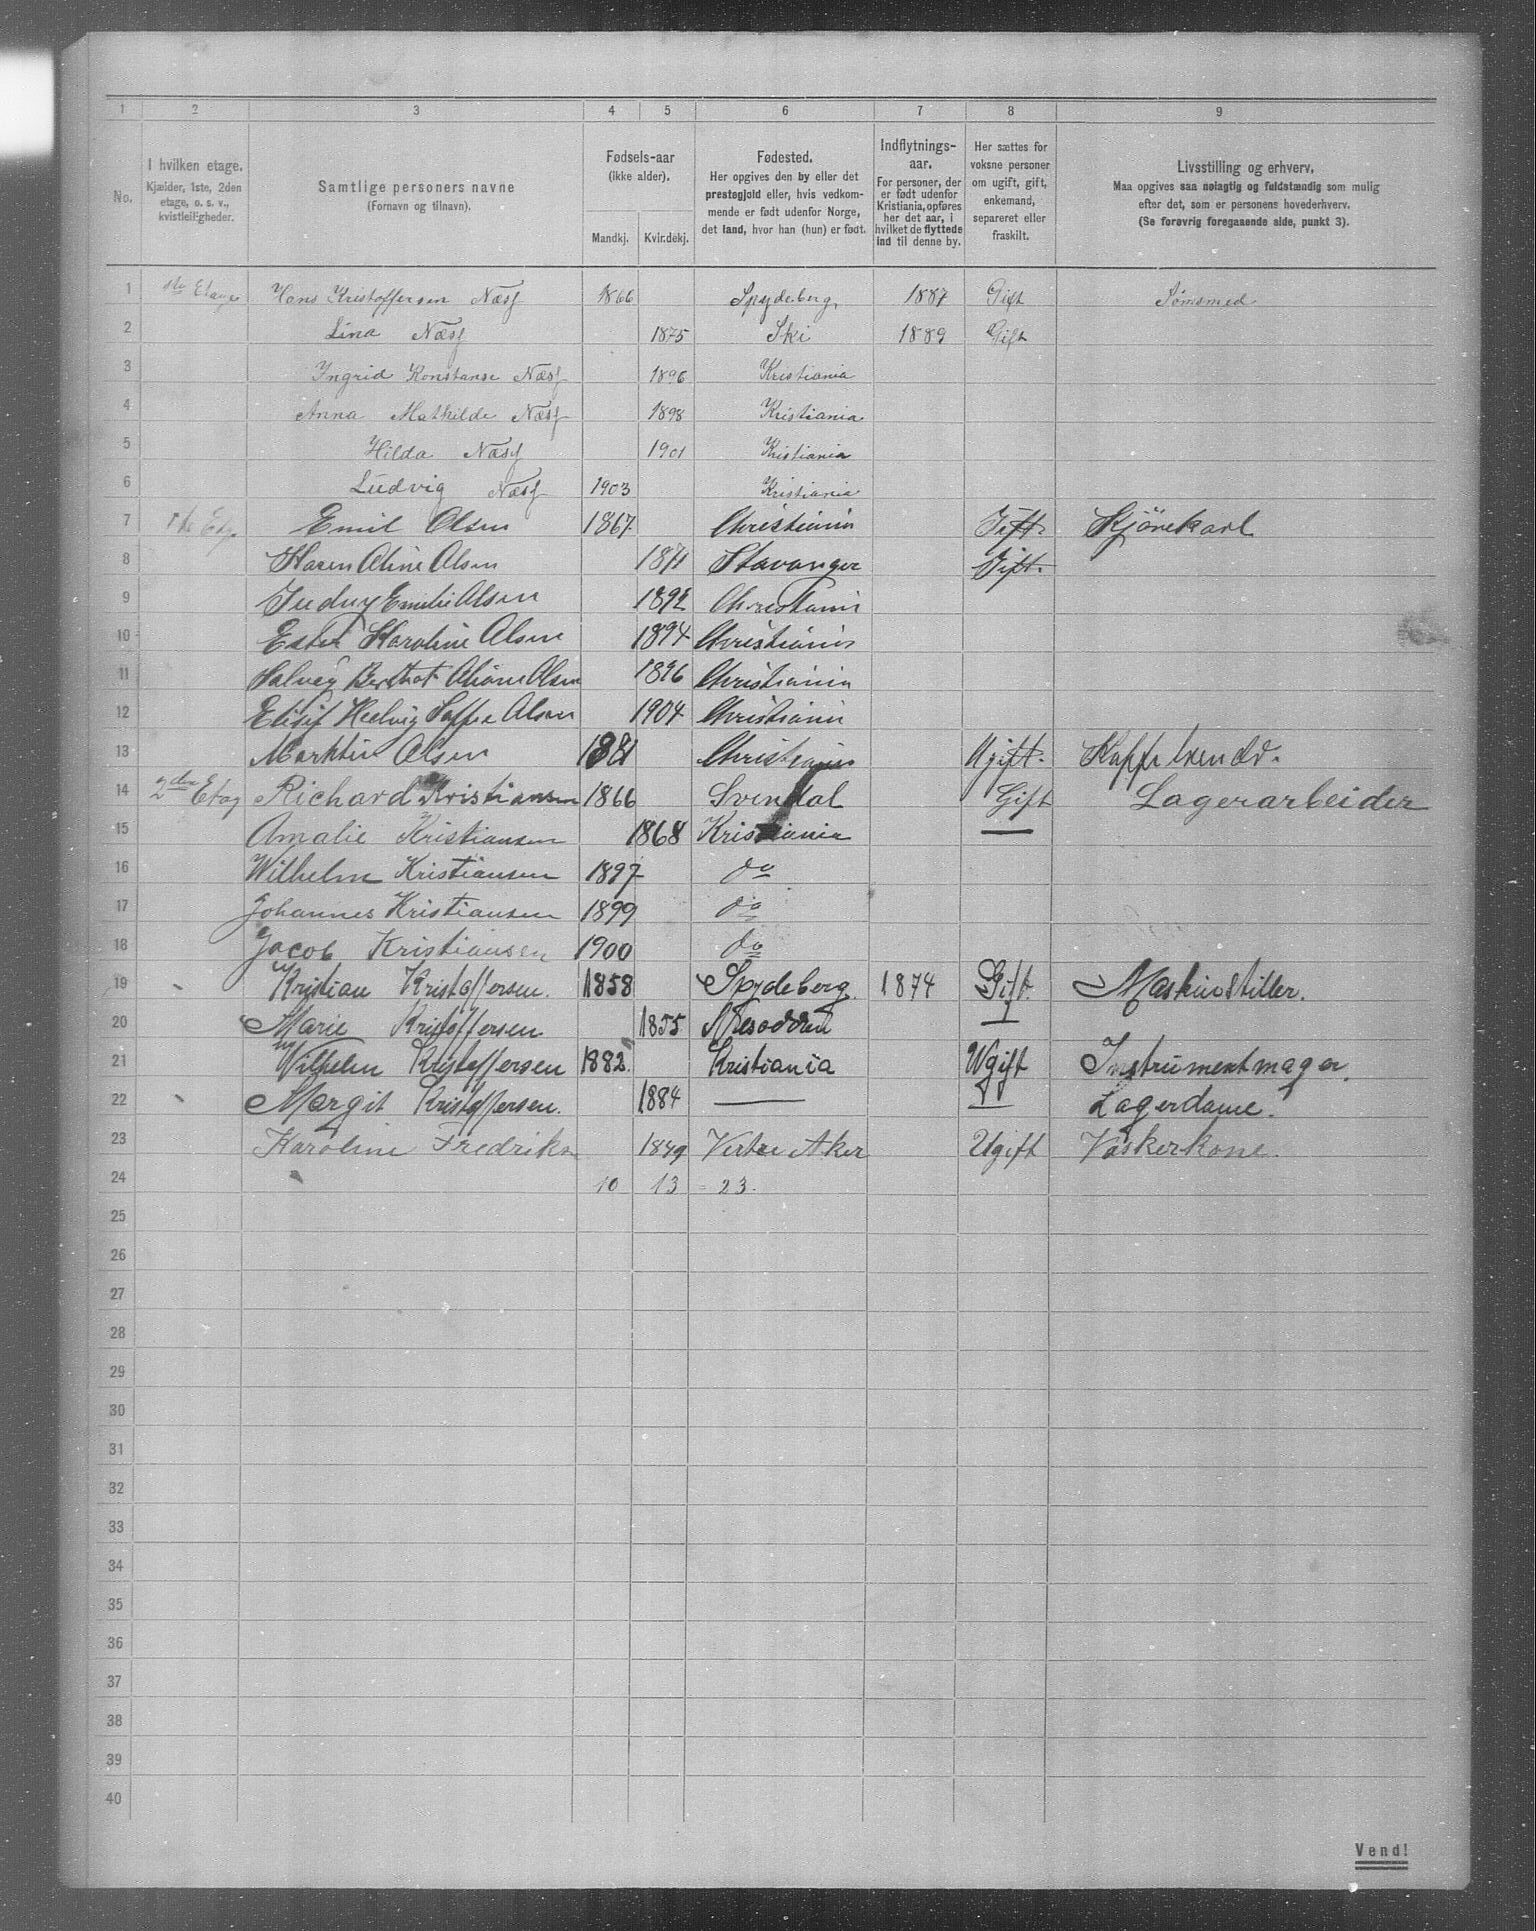 1 2 3 4 5 6 7 8 9
No. I hvilken etage. Kjælder, 1ste, 2den etage, o. s. v., kvistleiligheder. Samtlige personers navne (Fornavn og tilnavn). Fødsels-aar (ikke alder). Mandkj. Kvindekj. Fødested. Her opgives den by eller det prestegjeld eller, hvis vedkommende er født udenfor Norge, det land, hvor han (hun) er født. Indflytnings-aar. For personer, der er født udenfor Kristiania, opføres her det aar, i hvilket de flyttede ind til denne by. Her sættes for voksne personer om ugift, gift, enkemand, separeret eller fraskilt. Livsstilling og erhverv. Maa opgives saa nøiagtig og fuldstændig som mulig efter det, som er personens hovederhverv. (Se forøvrig foregaaende side, punkt 3).
1 Etage Hans Kristoffersen Næss 1866 Spydeberg 1887 Gift Sømsmed
2 Lina Næss 1875 Ski 1889 Gift
3 Ingrid Konstanse Næss 1896 Kristiania
4 Anna Mathilde Næss 1898 Kristiania
5 Hilda Næss 1901 Kristiania
6 Ludvig Næss 1903 Kristiania
7 Emil Olsen 1867 Christiania Gift. Kjörekarl
8 Karen Aline Olsen 1871 Stavanger Gift.
9 Emilie Olsen 1892 Christiania
10 Ester Karoline Olsen 1894 Christiania
11 Solveg Olsen 1896 Christiania
12 Elisif Hedvig Olsen 1904 Christiania
13 Olsen 1881 Christiania Ugift.
14 2den Etag Richard Kristiansen 1866 Svendal Gift Lagerarbeider
15 Amalie Kristiansen 1868 Kristiania —
16 Wilhelm Kristiansen 1897 do
17 Johannes Kristiansen 1899 do
18 Jacob Kristiansen 1900 do
19 Kristian Kristoffersen. 1858 Spydeberg 1874 Gift. Maskinstiller.
20 Marie Kristoffersen 1855 Nesodden —
21 Wilhelm Kristoffersen 1882. Kristiania Ugift Instrumentmager.
22 Margit Kristoffersen. 1884 — — Lagerdame.
23 Karoline Fredriks 1849 Vestre Aker Ugift Vaskerkone.
24 10 13 - 23.
25
26
27
28
29
30
31
32
33
34
35
36
37
38
39
40
Vend!